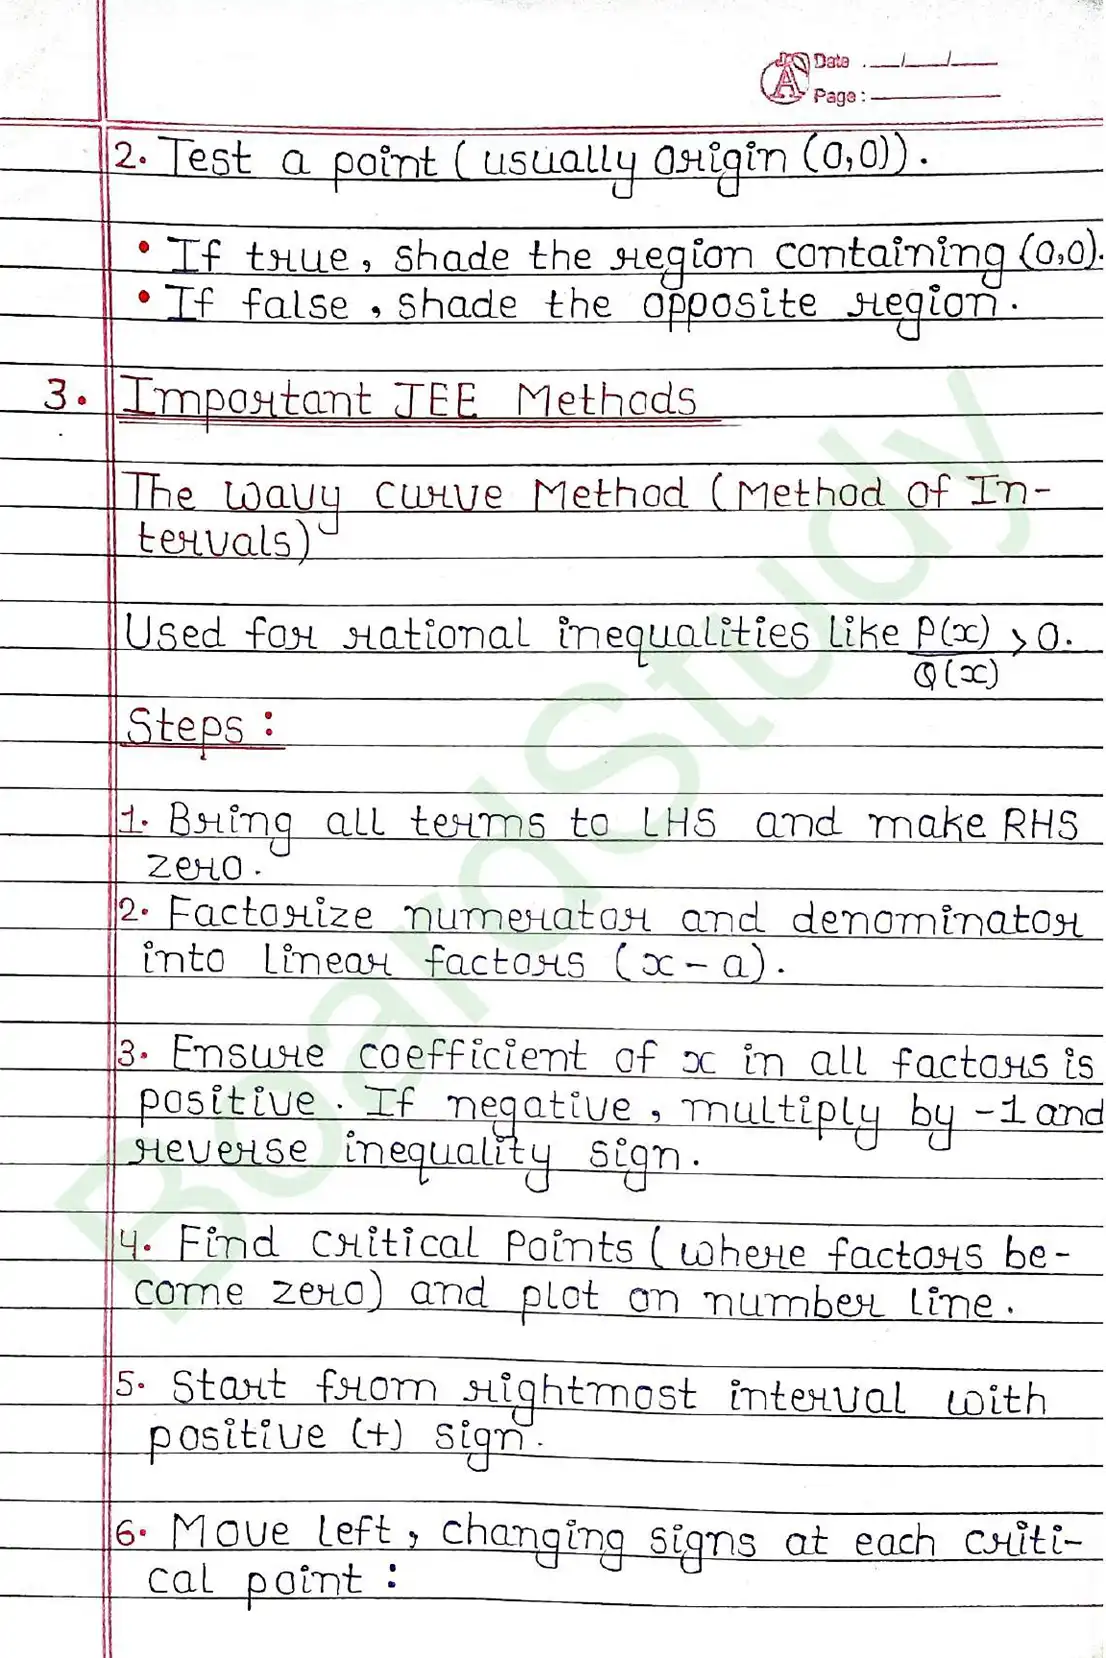 Date : __/__/__
Page : ______
2. Test a point (usually origin (0,0)).
• If true, shade the region containing (0,0).
• If false, shade the opposite region.
3. Important JEE Methods
The wavy curve Method (Method of In-
tervals)
Used for rational inequalities like P(x)/Q(x) > 0.
Steps :
1. Bring all terms to LHS and make RHS
zero.
2. Factorize numerator and denominator
into linear factors (x - a).
3. Ensure coefficient of x in all factors is
positive. If negative, multiply by -1 and
reverse inequality sign.
4. Find critical Points (where factors be-
come zero) and plot on number line.
5. Start from rightmost interval with
positive (+) sign.
6. Move left, changing signs at each criti-
cal point :
BoardStudy